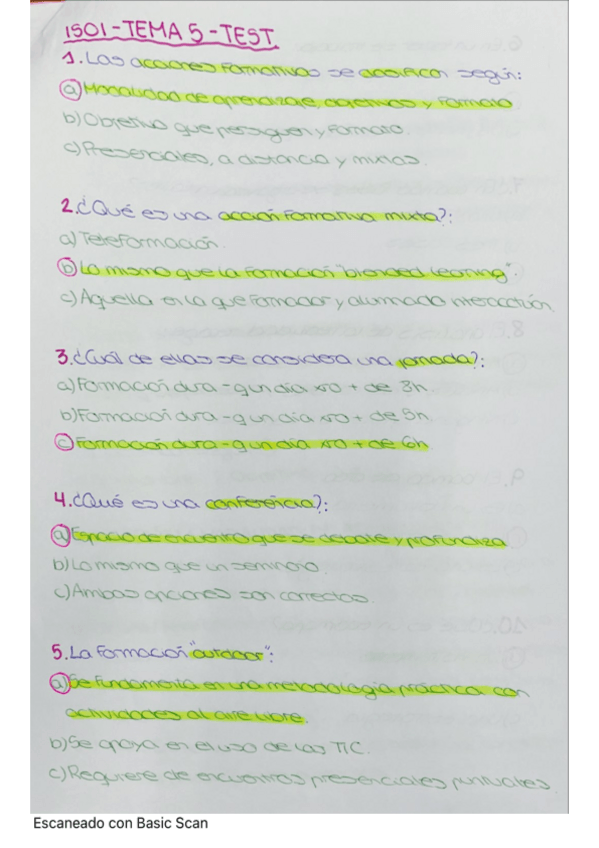 1S01-TEMA 5-TEST
1. Las acciones formativas se clasifican según:
a) Modalidad de aprendizaje, objetivos y formato
b) Objetivo que persiguen y formato.
c) Presenciales, a distancia y mixtas.
2. ¿Qué es una acción formativa mixta?:
a) Teleformación.
b) Lo mismo que la formación "blended learning".
c) Aquella en la que formador y alumnado interactúan.
3. ¿Cuál de ellas se considera una jornada?:
a) Formación dura -q un día xo + de 3h.
b) Formación dura -q un día xo + de 9h.
c) Formación dura -q un día xo + de 6h.
4. ¿Qué es una conferencia?:
a) Espacio de encuentro que se debate y profundiza
b) Lo mismo que un seminario.
c) Ambas opciones son correctas.
5. La formación "outdoor":
a) Se fundamenta en una metodología práctica con
actividades al aire libre.
b) Se apoya en el uso de las TIC.
c) Requiere de encuentros presenciales puntuales.
Escaneado con Basic Scan